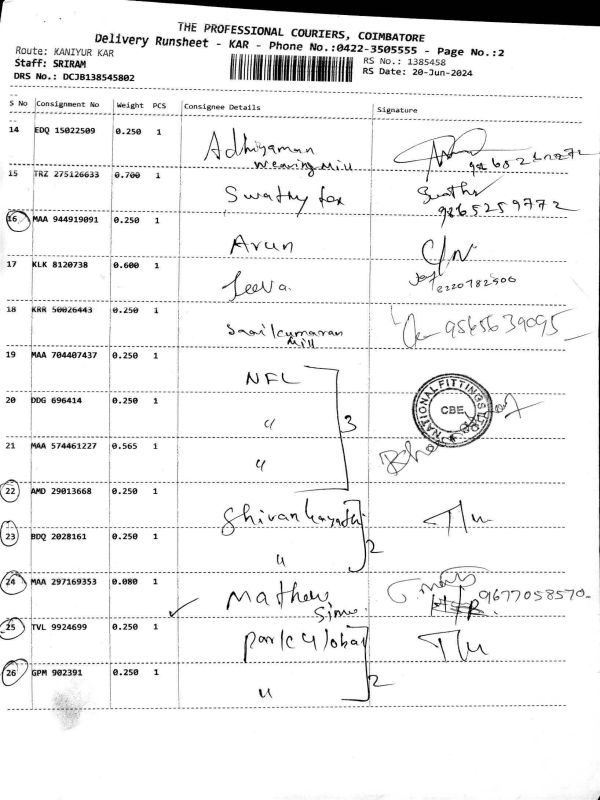 THE PROFESSIONAL COURIERS, COIMBATORE
Delivery Runsheet - KAR - Phone No.:0422-3505555 - Page No.:2
Route: KANIYUR KAR
RS No.: 1385458
Staff: SRIRAM
RS Date: 20-Jun-2024
DRS No.: DCJB138545802
S No Consignment No Weight PCS Consignee Details Signature
14 EDQ 15022509 0.250 1 Adhiyaman
Weaving Mill
15 TRZ 275126633 0.700 1 Swathy Tex
9865259772
16 MAA 944919091 0.250 1 Arun C/N
17 KLK 8120738 0.600 1 Jeeva
18 KRR 50026443 0.250 1 Saaikumaran
Mill
9565639095
19 MAA 704407437 0.250 1 NFL
20 DDG 696414 0.250 1 "
3
NATIONAL FITTINGS LTD
CBE
21 MAA 574461227 0.565 1 "
22 AMD 29013668 0.250 1 T/u
23 BDQ 2028161 0.250 1 "
2
24 MAA 297169353 0.080 1 Mathew
9677058570
25 TVL 9924699 0.250 1 Park Global T/u
26 GPM 902391 0.250 1 "
2